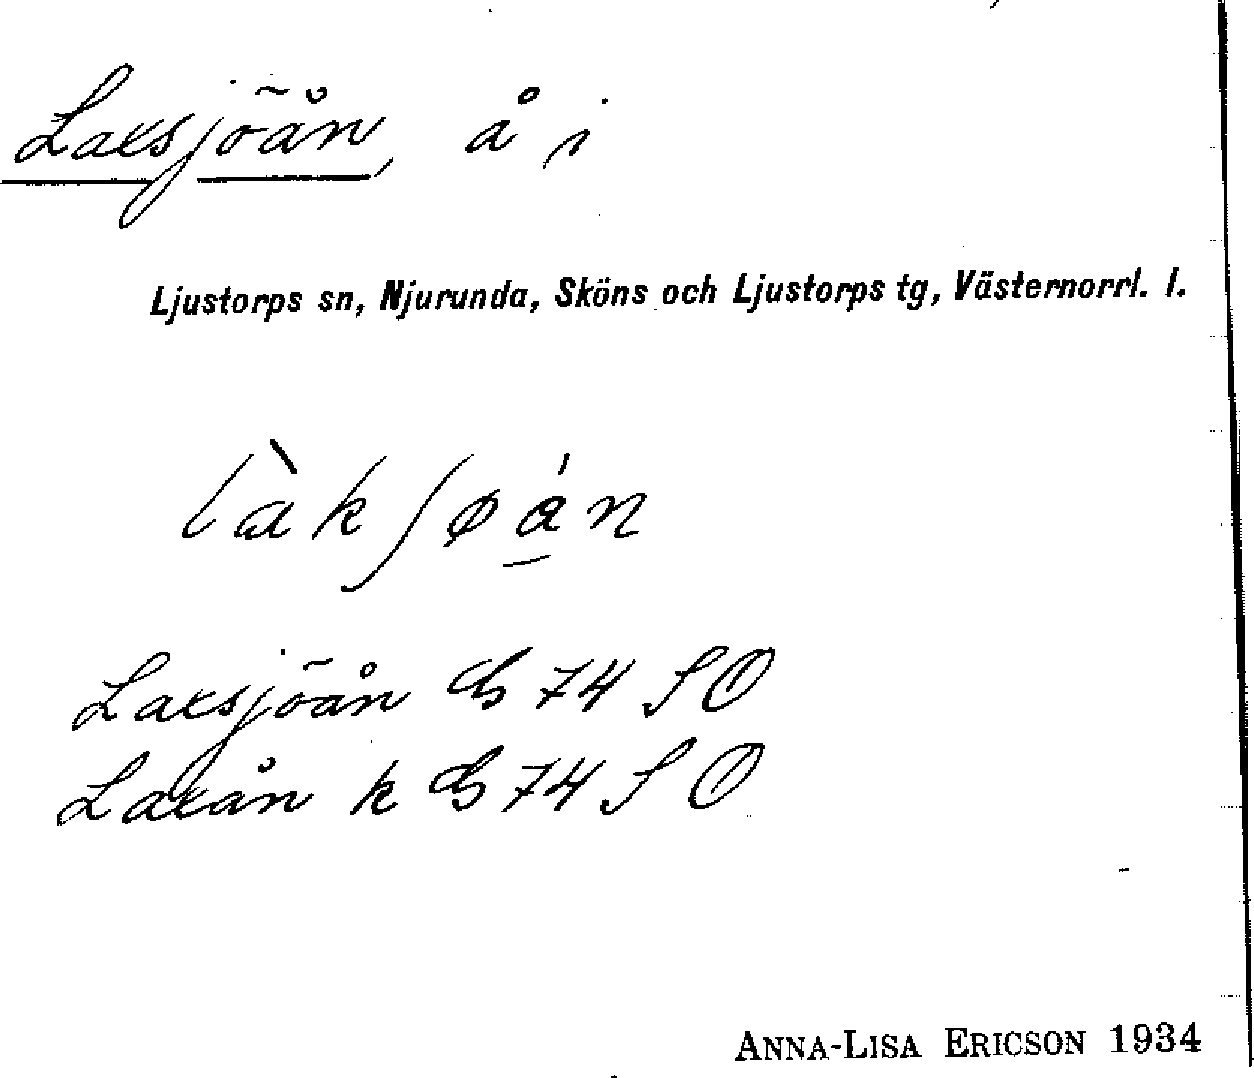 Laxsjöån, å i
Ljustorps sn, Njurunda, Sköns och Ljustorps tg, Västernorrl. l.
làkʃøá̱n
Laxsjöån GS 74 SO
Laxån k GS 74 SO
ANNA-LISA ERICSON 1934